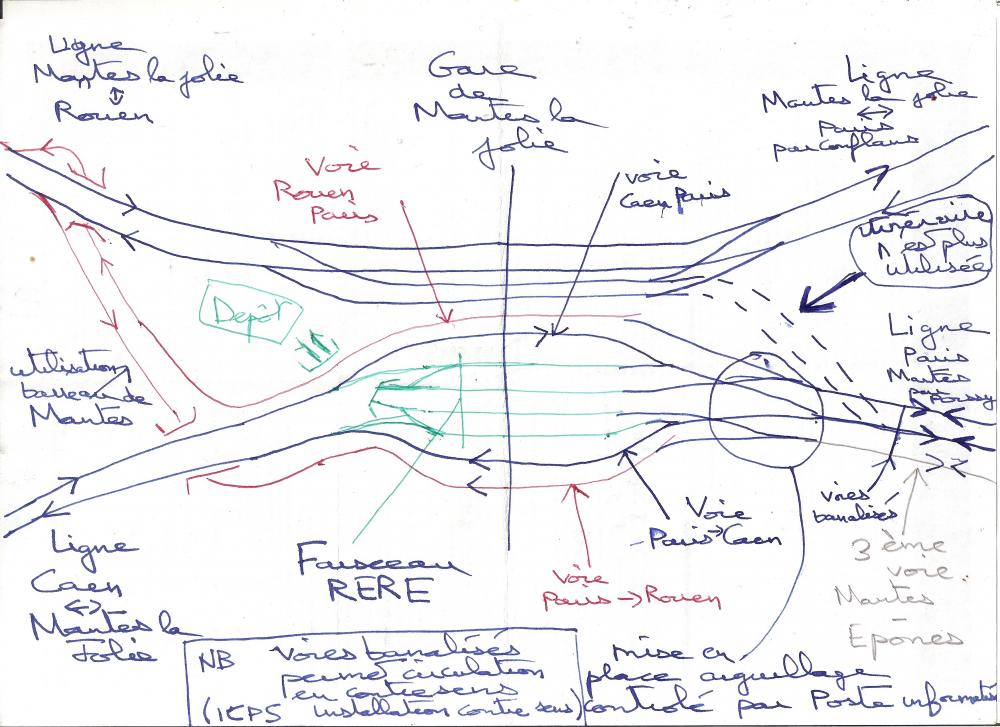 Ligne
Mantes la jolie
↕
Rouen
Gare
de
Mantes la
jolie
Ligne
Mantes la jolie
↔
Paris
par Conflans
Voie
Rouen
Paris
voie
Caen Paris
itinéraire
n'est plus
utilisée
Depôt
Ligne
Paris
Mantes
par Poissy
utilisation
barreau de
Mantes
voies
banalisés
Voie
Paris→Caen
3ème
voie
Mantes
Epônes
Ligne
Caen
↔
Mantes la
Jolie
Faisceau
RERE
Voie
Paris → Rouen
NB Voies banalisés
permet circulation
en contresens
(ICPS installation contre sens)
mise en
place aiguillage
controlé par Poste informatisé